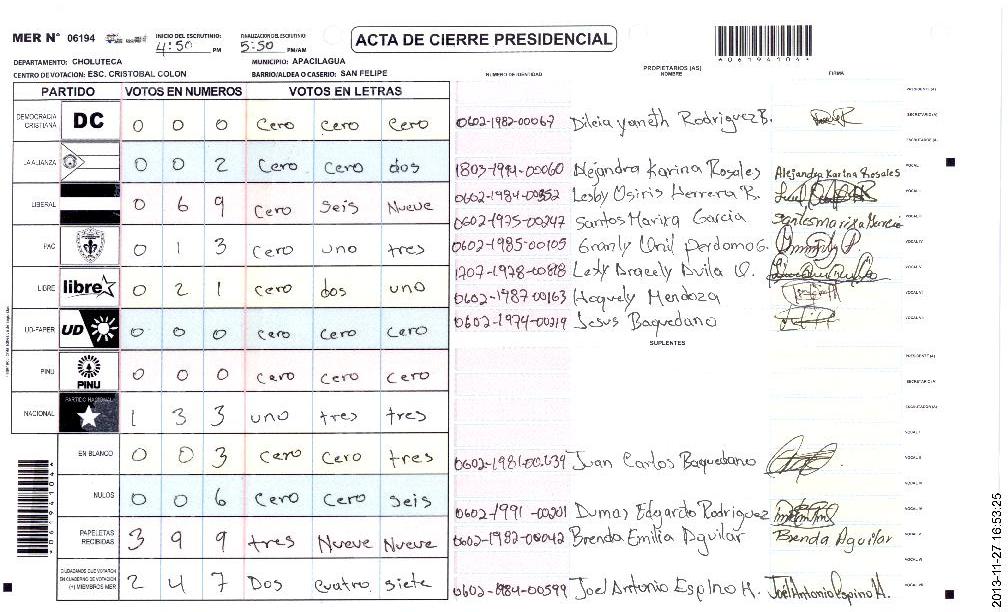 MER N° 06194
INICIO DEL ESCRUTINIO: 4:50 PM
FINALIZACION DEL ESCRUTINIO: 5:50 PM/AM
ACTA DE CIERRE PRESIDENCIAL
DEPARTAMENTO: CHOLUTECA MUNICIPIO: APACILAGUA
CENTRO DE VOTACION: ESC. CRISTOBAL COLON BARRIO/ALDEA O CASERIO: SAN FELIPE
NUMERO DE IDENTIDAD PROPIETARIOS (AS) NOMBRE FIRMA
PARTIDO VOTOS EN NUMEROS VOTOS EN LETRAS
DEMOCRACIA CRISTIANA DC 0 0 0 Cero Cero Cero
LA ALIANZA 0 0 2 Cero Cero dos
LIBERAL 0 6 9 Cero Seis Nueve
PAC 0 1 3 Cero uno tres
LIBRE libre 0 2 1 Cero dos uno
UD-FAPER UD 0 0 0 Cero Cero Cero
PINU PINU 0 0 0 Cero Cero Cero
NACIONAL PARTIDO NACIONAL 1 3 3 uno tres tres
EN BLANCO 0 0 3 Cero Cero tres
NULOS 0 0 6 Cero Cero Seis
PAPELETAS RECIBIDAS 3 9 9 tres Nueve Nueve
CIUDADANOS QUE VOTARON EN CUADERNO DE VOTACION (+) MIEMBROS MER 2 4 7 Dos Cuatro Siete
0602-1982-00067 Dilcia yaneth Rodriguez B.
1803-1991-00060 Alejandra Karina Rosales Alejandra Karina Rosales
0602-1984-00352 Lesby Osiris Herrera R.
0602-1975-00247 Santos Marixa Garcia Santos marixa Garcia
0602-1985-00105
1707-1978-00818 Lesly Aracely Avila O.
0602-1987-00163 Mendoza
0602-1974-00219 Jesus Baquedano
SUPLENTES
0602-1981-00639 Juan Carlos Baquedano
0602-1991-00201 Dumas Edgardo Rodriguez
0602-1982-00042 Brenda Emilia Aguilar Brenda Aguilar
0602-1984-00599 Joel Antonio Espino H. Joel Antonio Espino H.
06194104
2013-11-27 16:53:25